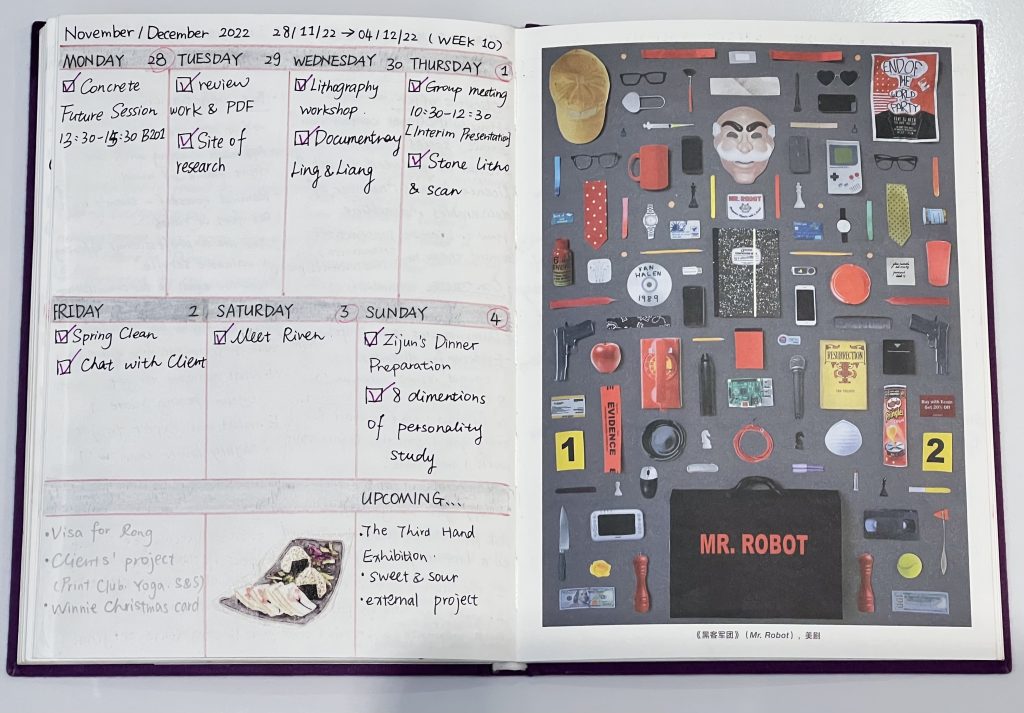 November / December 2022 28/11/22 → 04/12/22 (WEEK 10)
MONDAY 28
Concrete
Future Session
B201
TUESDAY 29
review
work & PDF
Site of
research
WEDNESDAY 30
Lithography
workshop.
Documentray
Ling & Liang
THURSDAY 1
Group meeting
10:30-12:30
Interim Presentation
Stone Litho
& scan
FRIDAY 2
Spring Clean
Chat with Client
SATURDAY 3
Meet River
SUNDAY 4
Zijun's Dinner
Preparation
8 dimentions
of personality
study
• Visa for Rong
• Clients' project
(Print Club. Yoga. S&S)
• Winnie Christmas card
UPCOMING...
• The Third Hand
Exhibition.
• sweet & sour
• external project
END OF
THE
WORLD
PARTY
MR. ROBOT
VAN
HALEN
1989
RESURRECTION
EVIDENCE
Pringles
Buy with Ecoin
Get 20% Off
1
2
MR. ROBOT
《黑客军团》（Mr. Robot），美剧